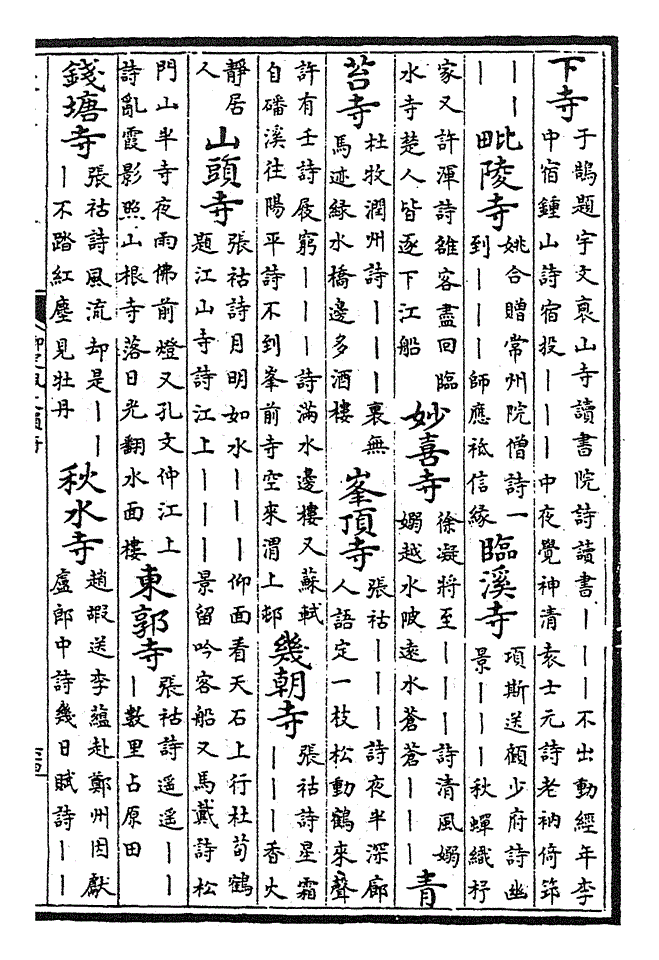 下寺于鵠題宇文裒山寺讀書院詩讀書｜｜｜不出動經年李中宿鍾山詩宿投｜｜｜中夜覺神清袁士元詩老衲倚筇
｜｜｜毗陵寺姚合贈常州院僧詩一到｜｜｜師應祗信緣臨溪寺項斯送顧少府詩幽景｜｜｜秋蟬織杼
家又許渾詩雒客盡回臨水寺楚人皆逐下江船妙喜寺徐凝將至｜｜｜詩清風嫋嫋越水陂遠水蒼蒼｜｜｜青
苔寺杜牧潤州詩｜｜｜｜裏無馬迹綠水橋邊多酒樓峯頂寺張祜｜｜｜詩夜半深廊人語定一枝松動鶴來聲
許有壬詩屐窮｜｜｜詩滿水邊樓又蘇軾自磻溪往陽平詩不到峯前寺空來渭上邨幾朝寺張祜詩星霜｜｜｜香火
靜居人山頭寺張祜詩月明如水｜｜｜仰面看天石上行杜荀鶴題江山寺詩江上｜｜｜景留吟客船又馬戴詩松
門山半寺夜雨佛前燈又孔文仲江上詩亂霞影照山根寺落日光翻水面樓東郭寺張祜詩遥遥｜｜｜數里占原田
錢塘寺張祜詩風流却是｜｜｜不踏紅塵見牡丹秋水寺趙瑕送李蘊赴鄭州因獻盧郎中詩幾日賦詩｜｜